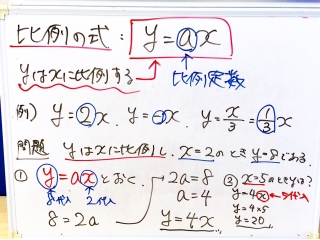 比例の式: y=ax
yはxに比例する
比例定数
例) y=2x. y=-x. y=x/3=1/3x
問題 yはxに比例し、x=2のときy=8である.
① y=axとおく.
8代入 2代入
8=2a
2a=8
a=4
y=4x
② x=5のときyは?
y=4x ←5代入
y=4×5
y=20